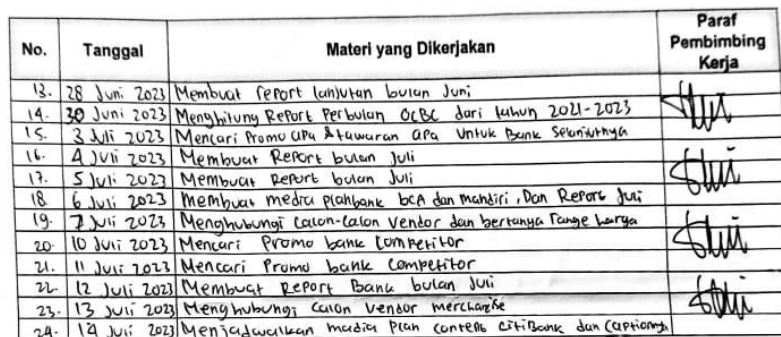 No. Tanggal Materi yang Dikerjakan Paraf Pembimbing Kerja
13. 28 Juni 2023 Membuat report lanjutan bulan Juni
14. 30 Juni 2023 Menghitung Report Perbulan OCBC dari tahun 2021-2023
15. 3 Juli 2023 Mencari Promo apa & tawaran apa Untuk Bank Selanjutnya
16. 4 Juli 2023 Membuat Report bulan Juli
17. 5 Juli 2023 Membuat Report bulan Juli
18 6 Juli 2023 Membuat media bank bca dan mandiri, Dan Report Juli
19. 7 Juli 2023 Menghubungi Calon-Calon Vendor dan bertanya range harga
20. 10 Juli 2023 Mencari Promo bank Competitor
21. 11 Juli 2023 Mencari Promo bank Competitor
22. 12 Juli 2023 Membuat Report Bank bulan Juli
23. 13 Juli 2023 Menghubungi calon vendor merchandise
24. 14 Juli 2023 Menjadwalkan madia Plan contens CitiBank dan Captionny